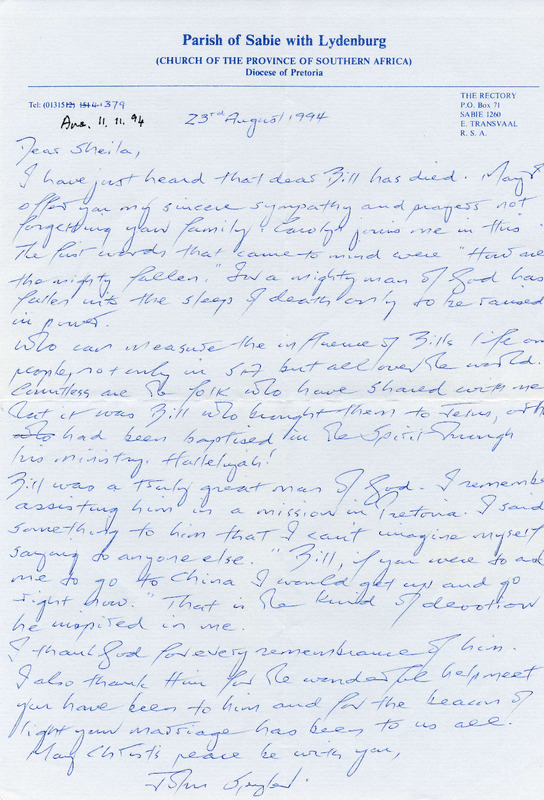 Parish of Sabie with Lydenburg
(CHURCH OF THE PROVINCE OF SOUTHERN AFRICA)
Diocese of Pretoria
Tel: (01315) 379
THE RECTORY
P.O. Box 71
SABIE 1260
E. TRANSVAAL
R. S. A.
Ans. 11. 11. 94
23rd August 1994
Dear Sheila,
I have just heard that dear Bill has died. May I
offer you my sincere sympathy and prayers not
forgetting your family. Carolyn joins me in this.
The first words that came to mind were "How are
the mighty fallen." For a mighty man of God has
fallen into the sleep of death only to be raised
in power.
Who can measure the influence of Bill's life on
people, not only in SA but all over the world.
Countless are the folk who have shared with me
that it was Bill who brought them to Jesus, or
had been baptised in the Spirit through
his ministry. Hallelujah!
Bill was a truly great man of God. I remember
assisting him in a mission in Pretoria. I said
something to him that I can't imagine myself
saying to anyone else. "Bill, if you were to ask
me to go to China I would get up and go
right now." That is the kind of devotion
he inspired in me.
I thank God for every remembrance of him.
I also thank Him for the wonderful helpmeet
you have been to him and for the beacon of
light your marriage has been to us all.
May Christ's peace be with you,
John